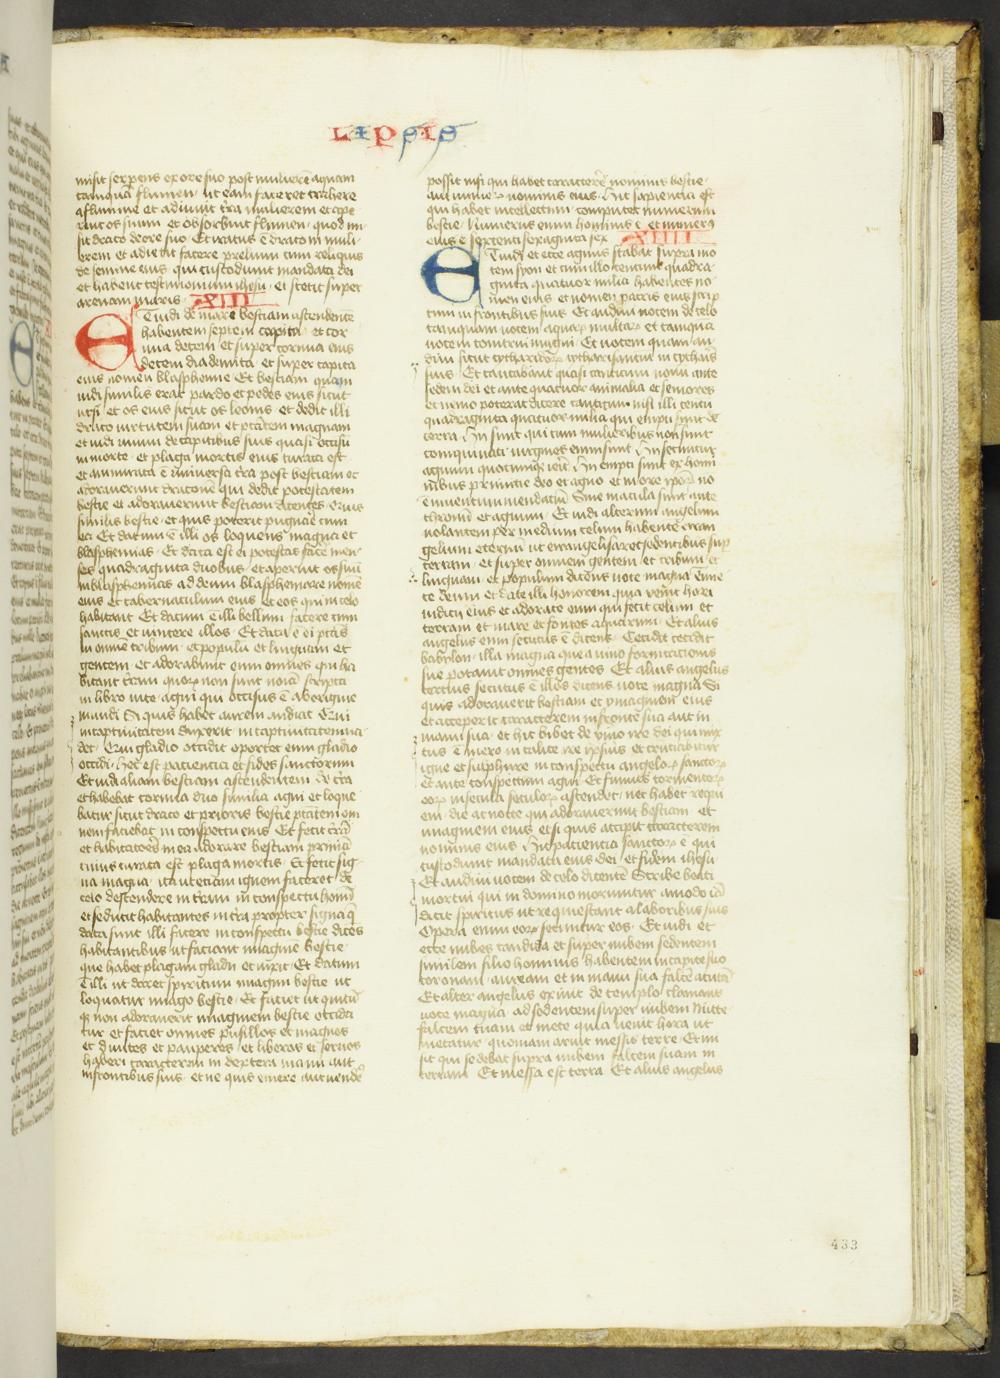 LIPSIS
misit serpens ex ore suo post mulierē aquam
tamquā flumen · ut eam faceret trahere
a flumine et adiuvit t̄ra mulierem et ape
ruit os suum et obsorbuit flumen · quod mi
sit draco de ore suo · Et iratus ē draco in muli
erem et abiit facere prelium cum reliquis
de semine eius · qui custodiunt mandata dei
et habent testimonium ihesu · et stetit super
arenam maris · XIII
Et vidi de mare bestiam ascendentē
habentem septem capita · et cor
nua decem et super cornua eius
decem diademata · et super capita
eius nomen blasphemie · Et bestiam quam
vidi similis erat pardo et pedes eius sicut
ursi · et os eius sicut os leonis · et dedit illi
draco virtutem suam et ptātem magnam
et vidi unum de capitibus suis quasi occisū
in morte · et plaga mortis eius curata est
et ammirata ē universa t̄ra post bestiam et
adoraverunt draconē qui dedit potestatem
bestie et adoraverunt bestiam dicentes · Quis
similis bestie · et quis poterit pugnare cum
ea Et datum ē illi os loquens magna et
blasphemias · Et data est ei potestas facē men
ses quadraginta duobus · et aperuit os suū
in blasphemias ad deum blasphemare nomē
eius et tabernaculum eius · et eos qui in celo
habitant Et datum ē illi bellum facere cum
sanctis et vincere illos · Et data ē ei ptās
in omnē tribum · et populū et linguam et
gentem · et adorabunt eum omnes qui ha
bitant t̄ram quoꝝ non sunt noīa scripta
in libro vite agni qui occisus ē ab origine
mundi Si quis habet aurem audiat Qui
in captivitatem duxerit in captivitatem va
det · Qui gladio occidit oportet eum gladio
occidi · hec est paciencia et fides sanctorum
Et vidi aliam bestiam ascendentem de t̄ra
et habebat cornua duo similia agni et loque
batur sicut draco et prioris bestie ptātem om
nem faciebat in conspectu eius Et fecit t̄rā
et habitatoēs in ea adorare bestiam primā
cuius curata est plaga mortis · Et fecit sig
na magna · ita ut etiam ignem faceret de
celo descendere in t̄ram in conspectu homī
et seducit habitantes in t̄ra propter signa q̄
data sunt illi facere in conspectu bestie dicēs
habitantibus ut faciant imaginē bestie ·
que habet plagam gladii et vixit · Et datum
ē illi ut daret spiritum imagini bestie ut
loquatur imago bestie · Et faciet ut quicū
qꝫ non adoraverit imaginem bestie occida
tur et faciet omnes pusillos et magnos
et divites et pauperes · et liberos et servos
haberi caracterem in dextera manu aut
in frontibus suis · et ne quis emere aut vendē
possit nisi qui habet caracterē nominis bestie ·
aut numeꝝ nominis eius · Hic sapiencia est
qui habet intellectum · computet numerum
bestie · Numerus enim hominis ē et numerꝰ
eius ē sexcenti sexaginta sex XIIII
Et vidi et ecce agnus stabat supra mo
tem syon et cum illo centum quadra
ginta quatuor milia habentes no
men eius et nomen patris eius scrip
tum in frontibus suis Et audivi vocem de celo
tamquam vocem aquaꝝ multaꝝ et tamquā
vocem tonitrui magni · Et vocem quam au
divi sicut cytharedoꝝ cytharisantiū in cytharis
suis · Et cantabant quasi canticum novū ante
sedem dei et ante quatuor animalia et seniores
et nemo poterat dicere canticum nisi illi centū
quadraginta quatuor milia qui empti sunt de
terra · Hii sunt qui cum mulieribus non sunt
coinquinati virgines enim sunt · Hii secuntur
agnum quocumqꝫ ierit · Hii empti sunt ex homi
nibus primicie deo et agno · et in ore ipoꝝ nō
ē inventum mendaciū Sine macula sunt ante
thronū et agnum · Et vidi alterum angelum
volantem per medium celum habentē ewan
gelium eternū ut ewangelisaret sedentibus sup
terram · et super omnem gentem · et tribum et
linguam · et populum dicens voce magna Time
te deum et date illi honorem quia venit hora
iudicii eius et adorate eum qui fecit celum et
terram et mare et fontes aquarum · Et alius
angelus eum secutus ē dicens · Cecidit cecidit
babylon · illa magna que a vino fornicationis
sue potavit omnes gentes · Et alius angelus
tercius secutus ē illos dicens voce magna Si
quis adoraverit bestiam et ymaginem eius
et acceperit caracterem in fronte sua aut in
manu sua · et hic bibet de vino ire dei qui mix
tus ē mero in calice ire ipsius et cruciabitur
igne et sulphure in conspectu angeloꝝ sanctoꝝ
et ante conspectum agni · Et fumus tormentoꝝ
eoꝝ in secula seculoꝝ ascendet · nec habet requi
em · die ac nocte qui adoraverunt bestiam · et
imaginem eius et si quis accipit caracterem
nominis eius Hic paciencia sanctoꝝ ē qui
custodiunt mandata eius dei · et fidem ihesu ·
Et audivi vocem de celo dicentē Scribe beati
mortui qui in domino moriuntur amodo iā
dicit spiritus ut requiescant a laboribus suis
Opera enim eoꝝ secuntur eos · Et vidi et
ecce nubes candida et super nubem sedentem
similem filio hominis habentem in capite suo
coronam auream et in manu sua falcē acutā
Et alter angelus exivit de templo clamans
voce magna ad sedentem super nubem Mitte
falcem tuam et mete quia venit hora ut
metatur quoniam aruit messis terre · Et mi
sit qui sedebat supra nubem falcem suam in
terram · Et messa est terra Et alius angelus
433